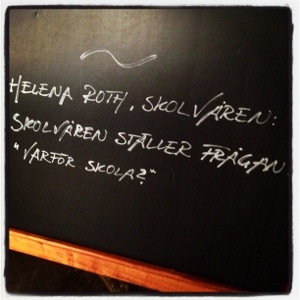 HELENA ROTH, SKOLVÅREN:
SKOLVÅREN STÄLLER FRÅGAN
"VARFÖR SKOLA?"